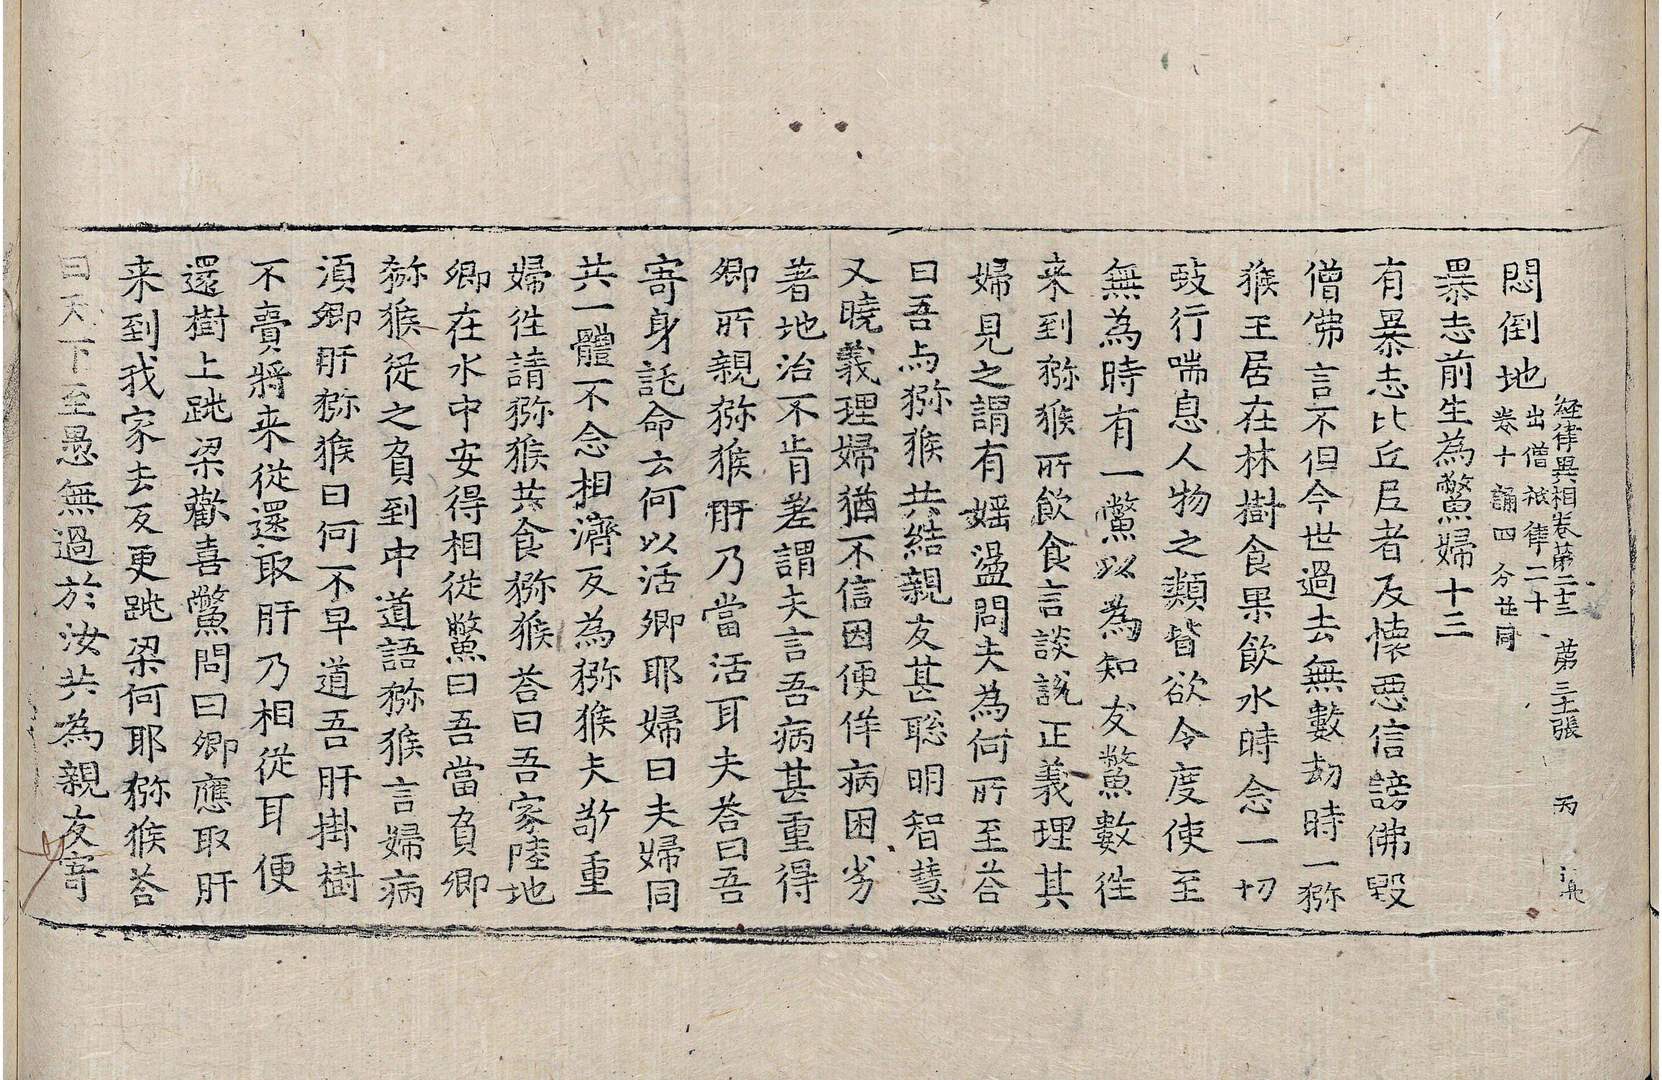 経律異相卷苐二十三 苐三十張 丙
悶倒地 出僧祇律二十
卷十誦四分並同
暴志前生為鱉婦十三
有暴志比丘尼者及懷惡信謗佛毀
僧佛言不但今世過去無數劫時一獼
猴王居在林樹食果飲水時念一切
跂行喘息人物之類皆欲令度使至
無為時有一鱉以為知友鱉數往
来到獼猴所飲食言談說正義理其
婦見之謂有婬盪問夫為何所至荅
曰吾与獼猴共結親友甚聡明智慧
又曉義理婦猶不信因便佯病困劣
著地治不肯差謂夫言吾病甚重得
卿所親獼猴肝乃當活耳夫荅曰吾
寄身託命云何以活卿耶婦曰夫婦同
共一體不念相濟反為獼猴夫敬重
婦往請獼猴共食獼猴荅曰吾家陸地
卿在水中安得相從鱉曰吾當負卿
獼猴從之負到中道語獼猴言婦病
湏卿肝獼猴曰何不早道吾肝掛樹
不賷將来從還取肝乃相從耳便
還樹上跳梁歡喜鱉問曰卿應取肝
来到我家去反更跳梁何耶獼猴荅
曰天下至愚無過於汝共為親友寄